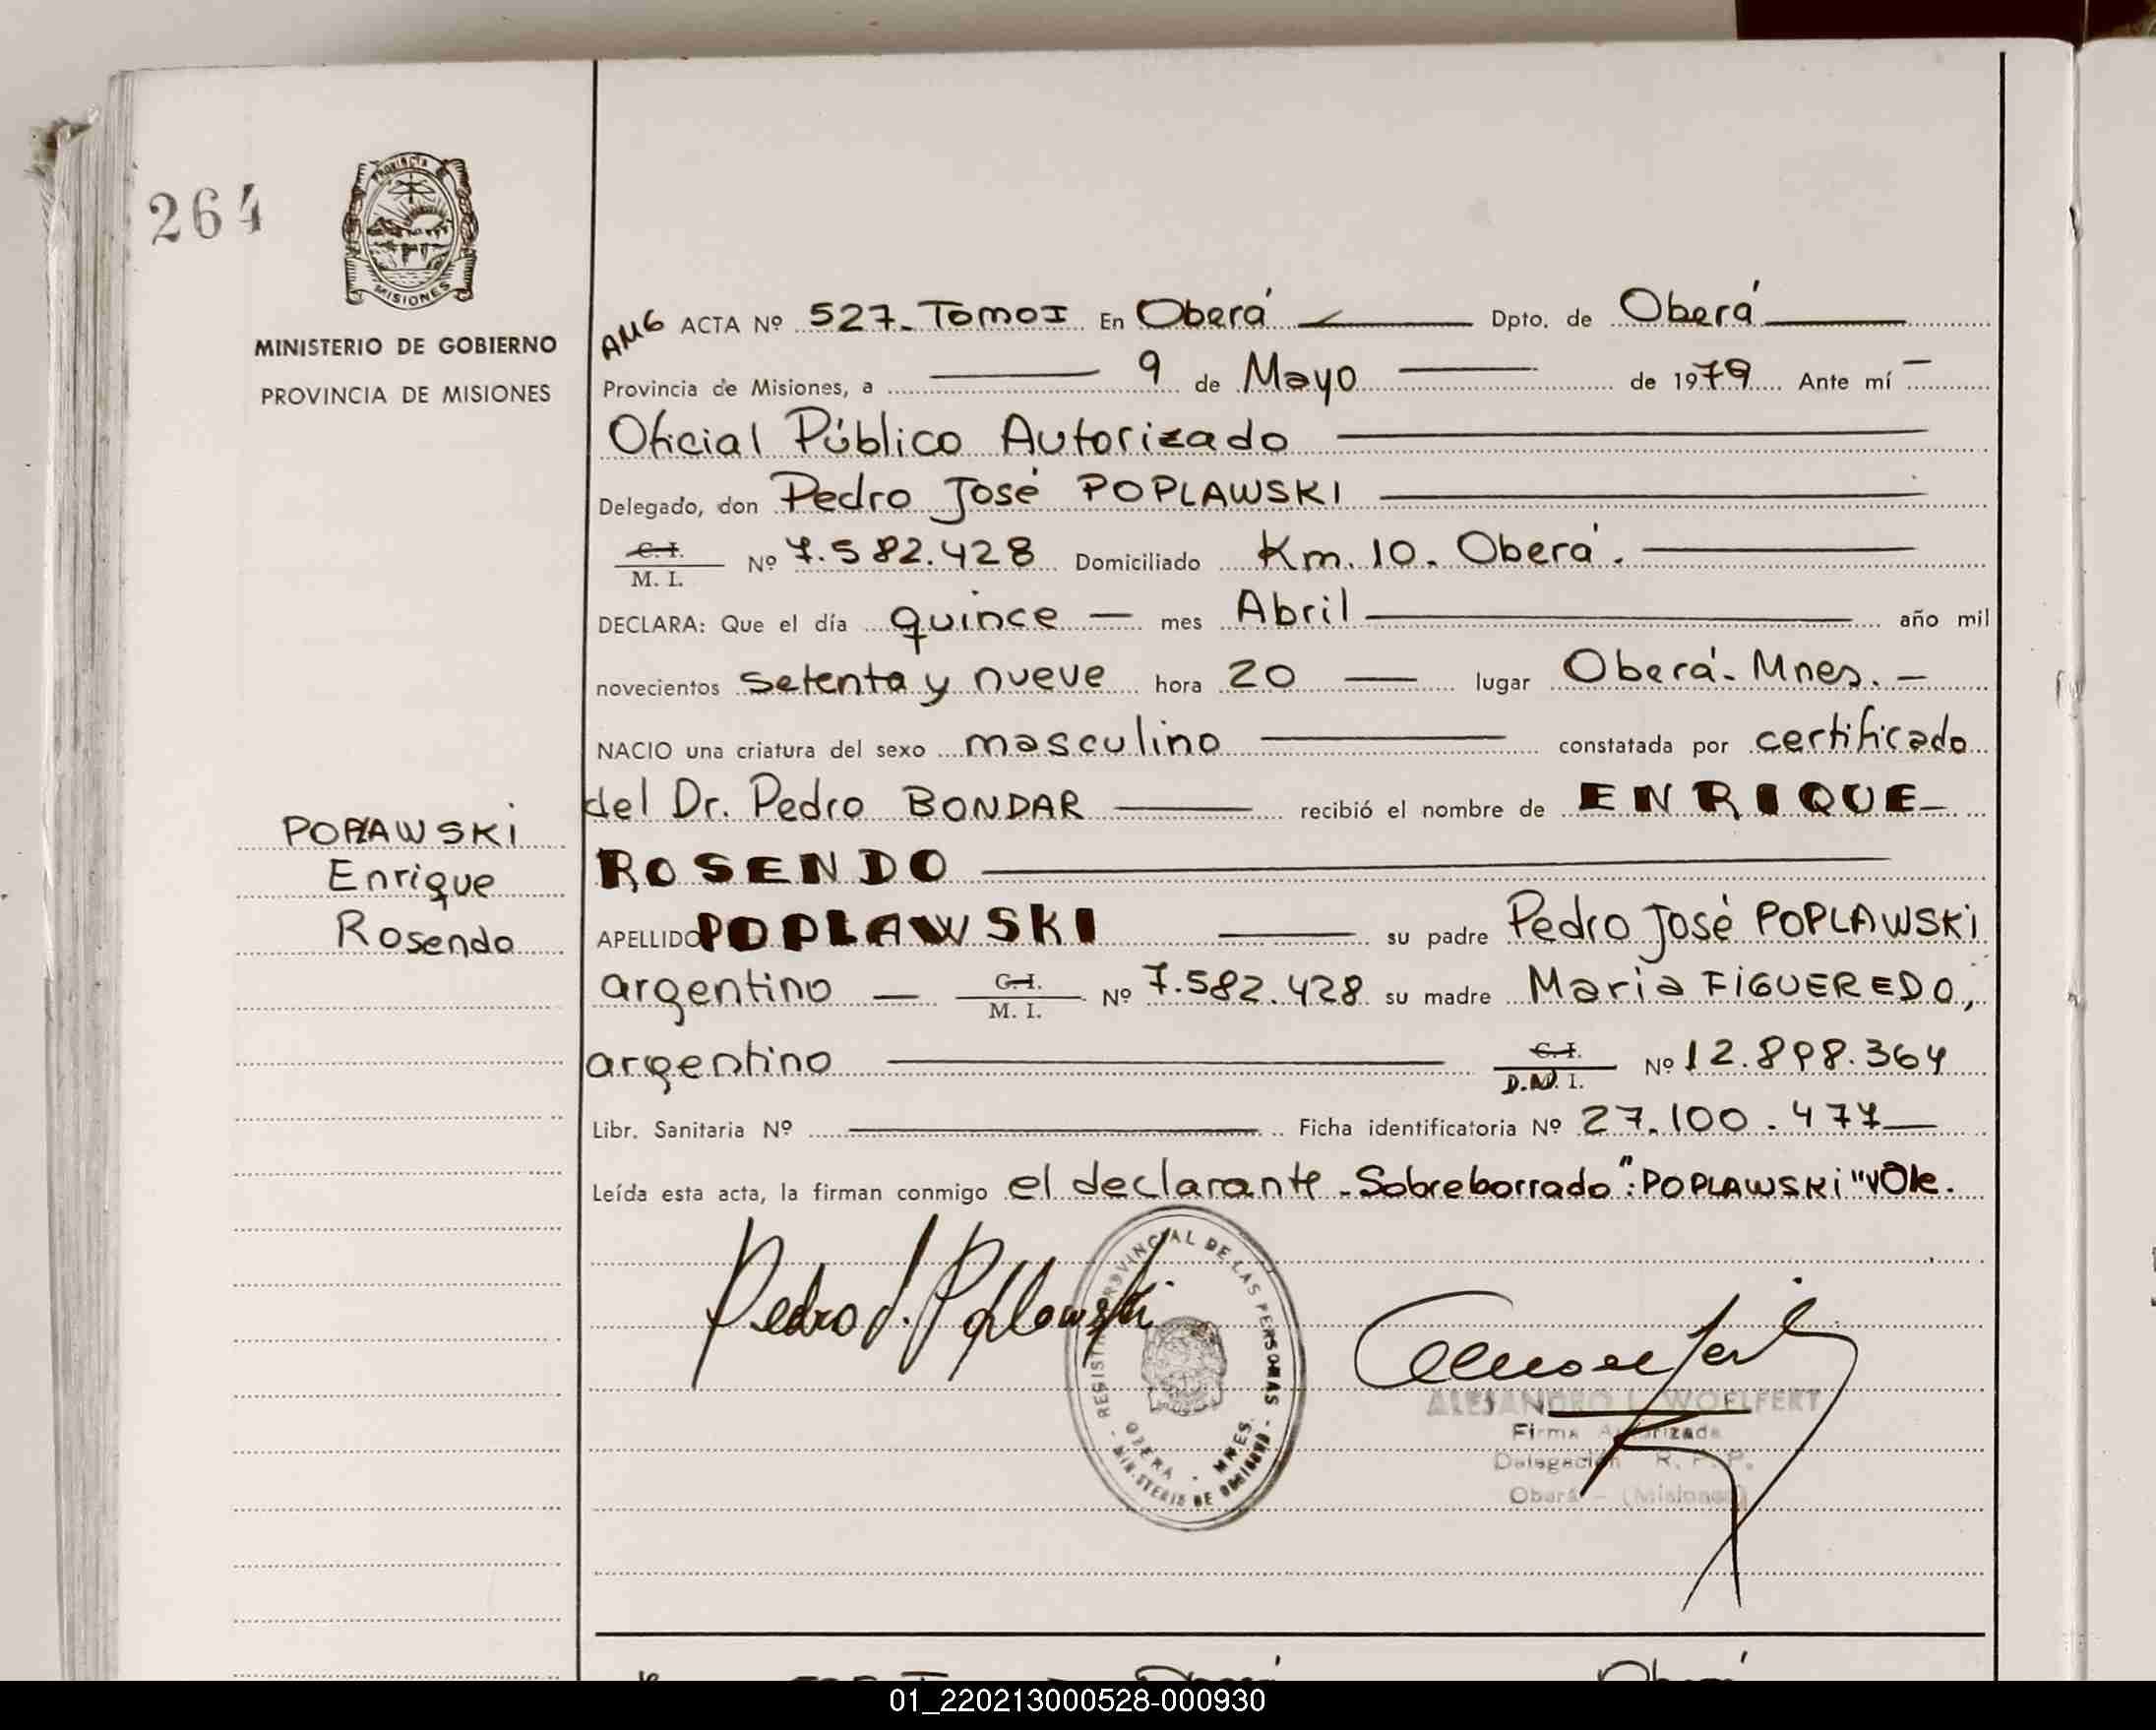 264
PROVINCIA
MISIONES
MINISTERIO DE GOBIERNO
PROVINCIA DE MISIONES
AMG ACTA Nº 527_ Tomo I En Oberá Dpto. de Oberá
Provincia de Misiones, a 9 de Mayo de 1979 Ante mí
Oficial Público Autorizado
Delegado, don Pedro José POPLAWSKI
C. I.
M. I. Nº 7.582.428 Domiciliado Km. 10. Oberá.
DECLARA: Que el día quince — mes Abril año mil
novecientos setenta y nueve hora 20 — lugar Oberá- Mnes. —
NACIO una criatura del sexo masculino constatada por certificado
del Dr. Pedro BONDAR recibió el nombre de ENRIQUE
ROSENDO
APELLIDO POPLAWSKI su padre Pedro José POPLAWSKi
argentino — C. I.
M. I. Nº 7.582.428 su madre Maria FiGUEREDO,
argentino C. I.
D.N. I. Nº 12.898.364
Libr. Sanitaria Nº Ficha identificatoria Nº 27.100.477
Leída esta acta, la firman conmigo el declarante _Sobreborrado": POPLAWSKi "vOle.
POPLAWSKi
Enrique
Rosendo
Pedro J. Poplawski
REGISTRO PROVINCIAL DE LAS PERSONAS
OBERA - MNES.
MINISTERIO DE GOBIERNO
ALEJANDRO L. WOELFERT
Firma Autorizada
Delegación R. P. P.
Oberá - (Misiones)
01_220213000528-000930